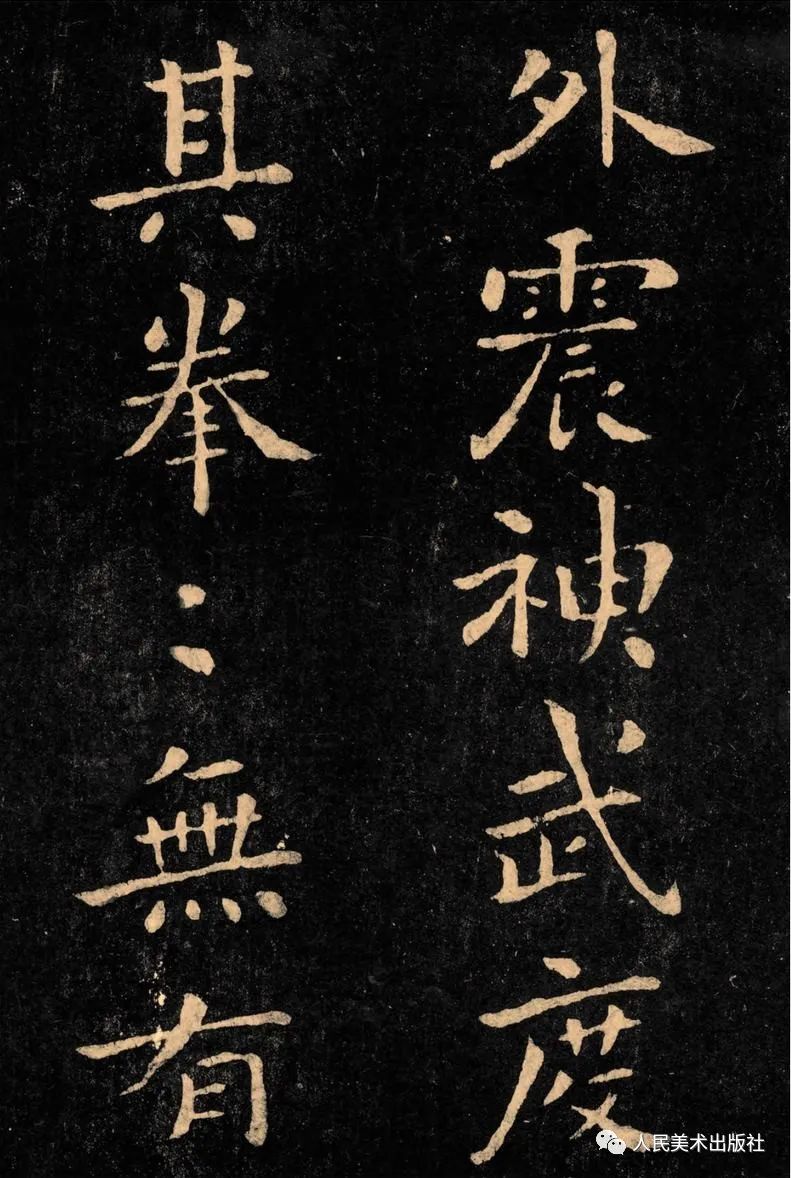 外震神武度
其拳〻無有
人民美术出版社